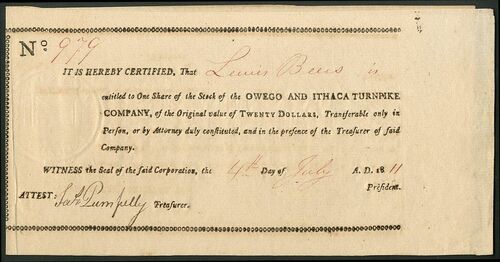 No. 979
IT IS HEREBY CERTIFIED, That Lewis Beers is
entitled to One Share of the Stock of the OWEGO AND ITHACA TURNPIKE
COMPANY, of the Original value of TWENTY DOLLARS, Transferable only in
Person, or by Attorney duly constituted, and in the presence of the Treasurer of said
Company.
WITNESS the Seal of the said Corporation, the 4th Day of July A. D. 1811
President.
ATTEST: Jas. Pumpelly Treasurer.